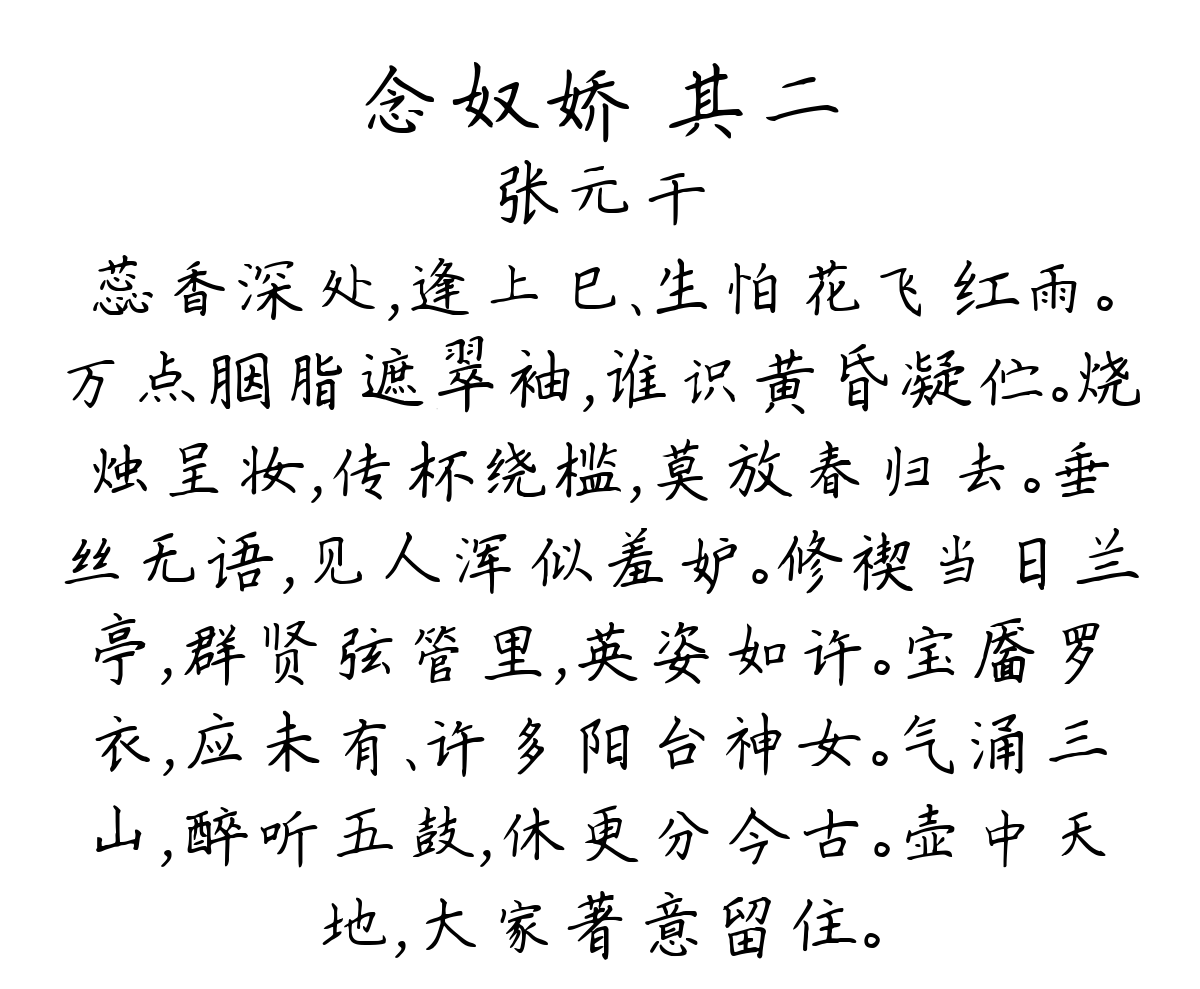 念奴娇 其二
张元干
蕊香深处,逢上巳、生怕花飞红雨。
万点胭脂遮翠袖,谁识黄昏凝伫。烧
烛呈妆,传杯绕槛,莫放春归去。垂
丝无语,见人浑似羞妒。修禊当日兰
亭,群贤弦管里,英姿如许。宝靥罗
衣,应未有、许多阳台神女。气涌三
山,醉听五鼓,休更分今古。壶中天
地,大家著意留住。